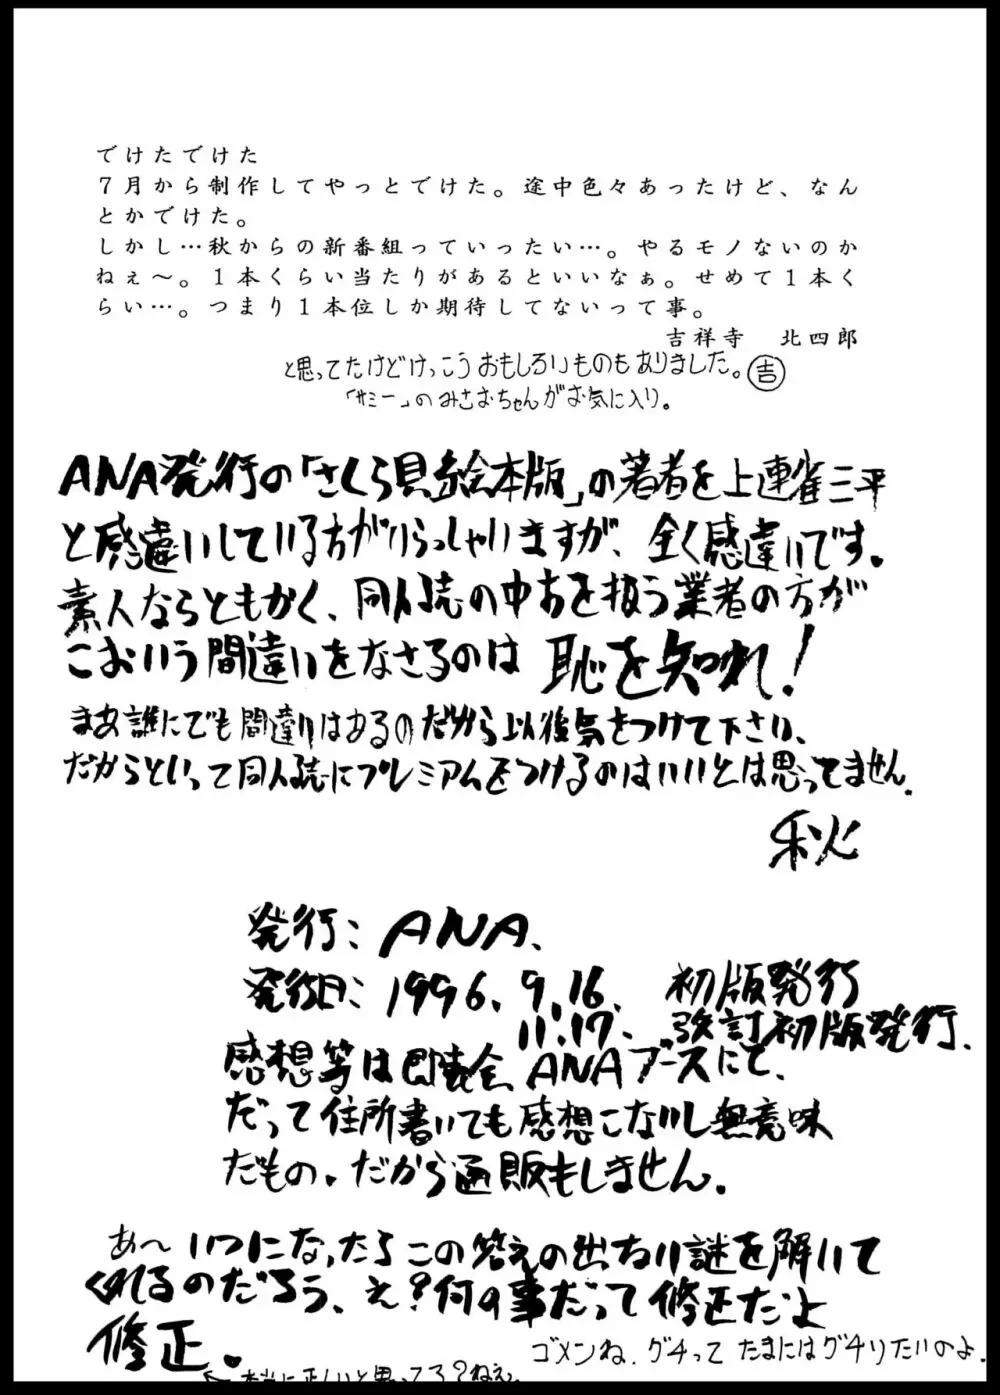 でけたでけた
7月から制作してやっとでけた。途中色々あったけど、なん
とかでけた。
しかし…秋からの新番組っていったい…。やるモノないのか
ねぇ～。1本くらい当たりがあるといいなぁ。せめて1本く
らい…。つまり1本位しか期待してないって事。
吉祥寺　北四郎
と思ってたけどけっこうおもしろいものもありました。吉
「サミー」のみさおちゃんがお気に入り。
ANA発行の「さくら貝絵本版」の著者を上連雀三平
と感違いしている方がいらっしゃいますが、全く感違いです。
素人ならともかく、同人誌の中古を扱う業者の方が
こおいう間違いをなさるのは 恥を知れ！
まあ誰にでも間違いはあるのだから以後気をつけて下さい、
だからといって同人誌にプレミアムをつけるのはいいとは思ってません.
秋
発行：ANA.
発行日：1996.9.16. 初版発行
11.17. 改訂初版発行.
感想等は即売会 ANAブースにて.
だって住所書いても感想こないし無意味
だもの。だから通販もしません。
あ～いつになったらこの答えの出ない謎を解いて
くれるのだろう、え？何の事だって修正だよ
修正。
ゴメンね.グチって たまにはグチりたいのよ.
←本当に正しいと思ってる？ねえ。